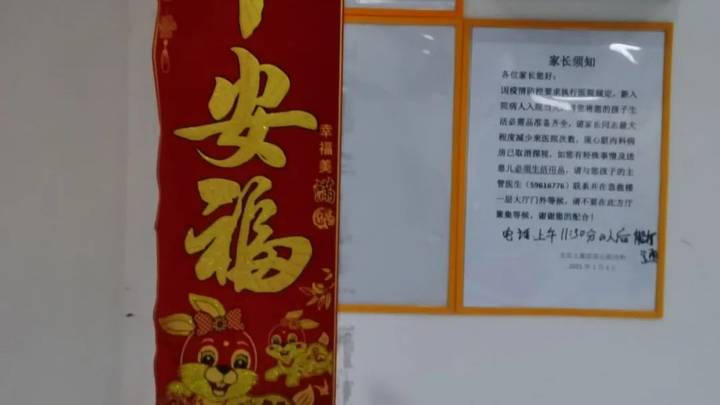 安
福
幸福美
满
家长须知
各位家长您好:
因疫情防控要求执行医院规定,新入
院病人入院当天请您将您的孩子生
活必需品准备齐全,请家长同志最大
程度减少来医院次数,现心脏内科病
房已取消探视,如您有特殊事情及送
患儿必须生活用品,请与您孩子的主
管医生(59616776)联系并在急救楼
一层大厅门外等候,请不要在此方厅
聚集等候,谢谢您的配合!
电话上午11:30分以后